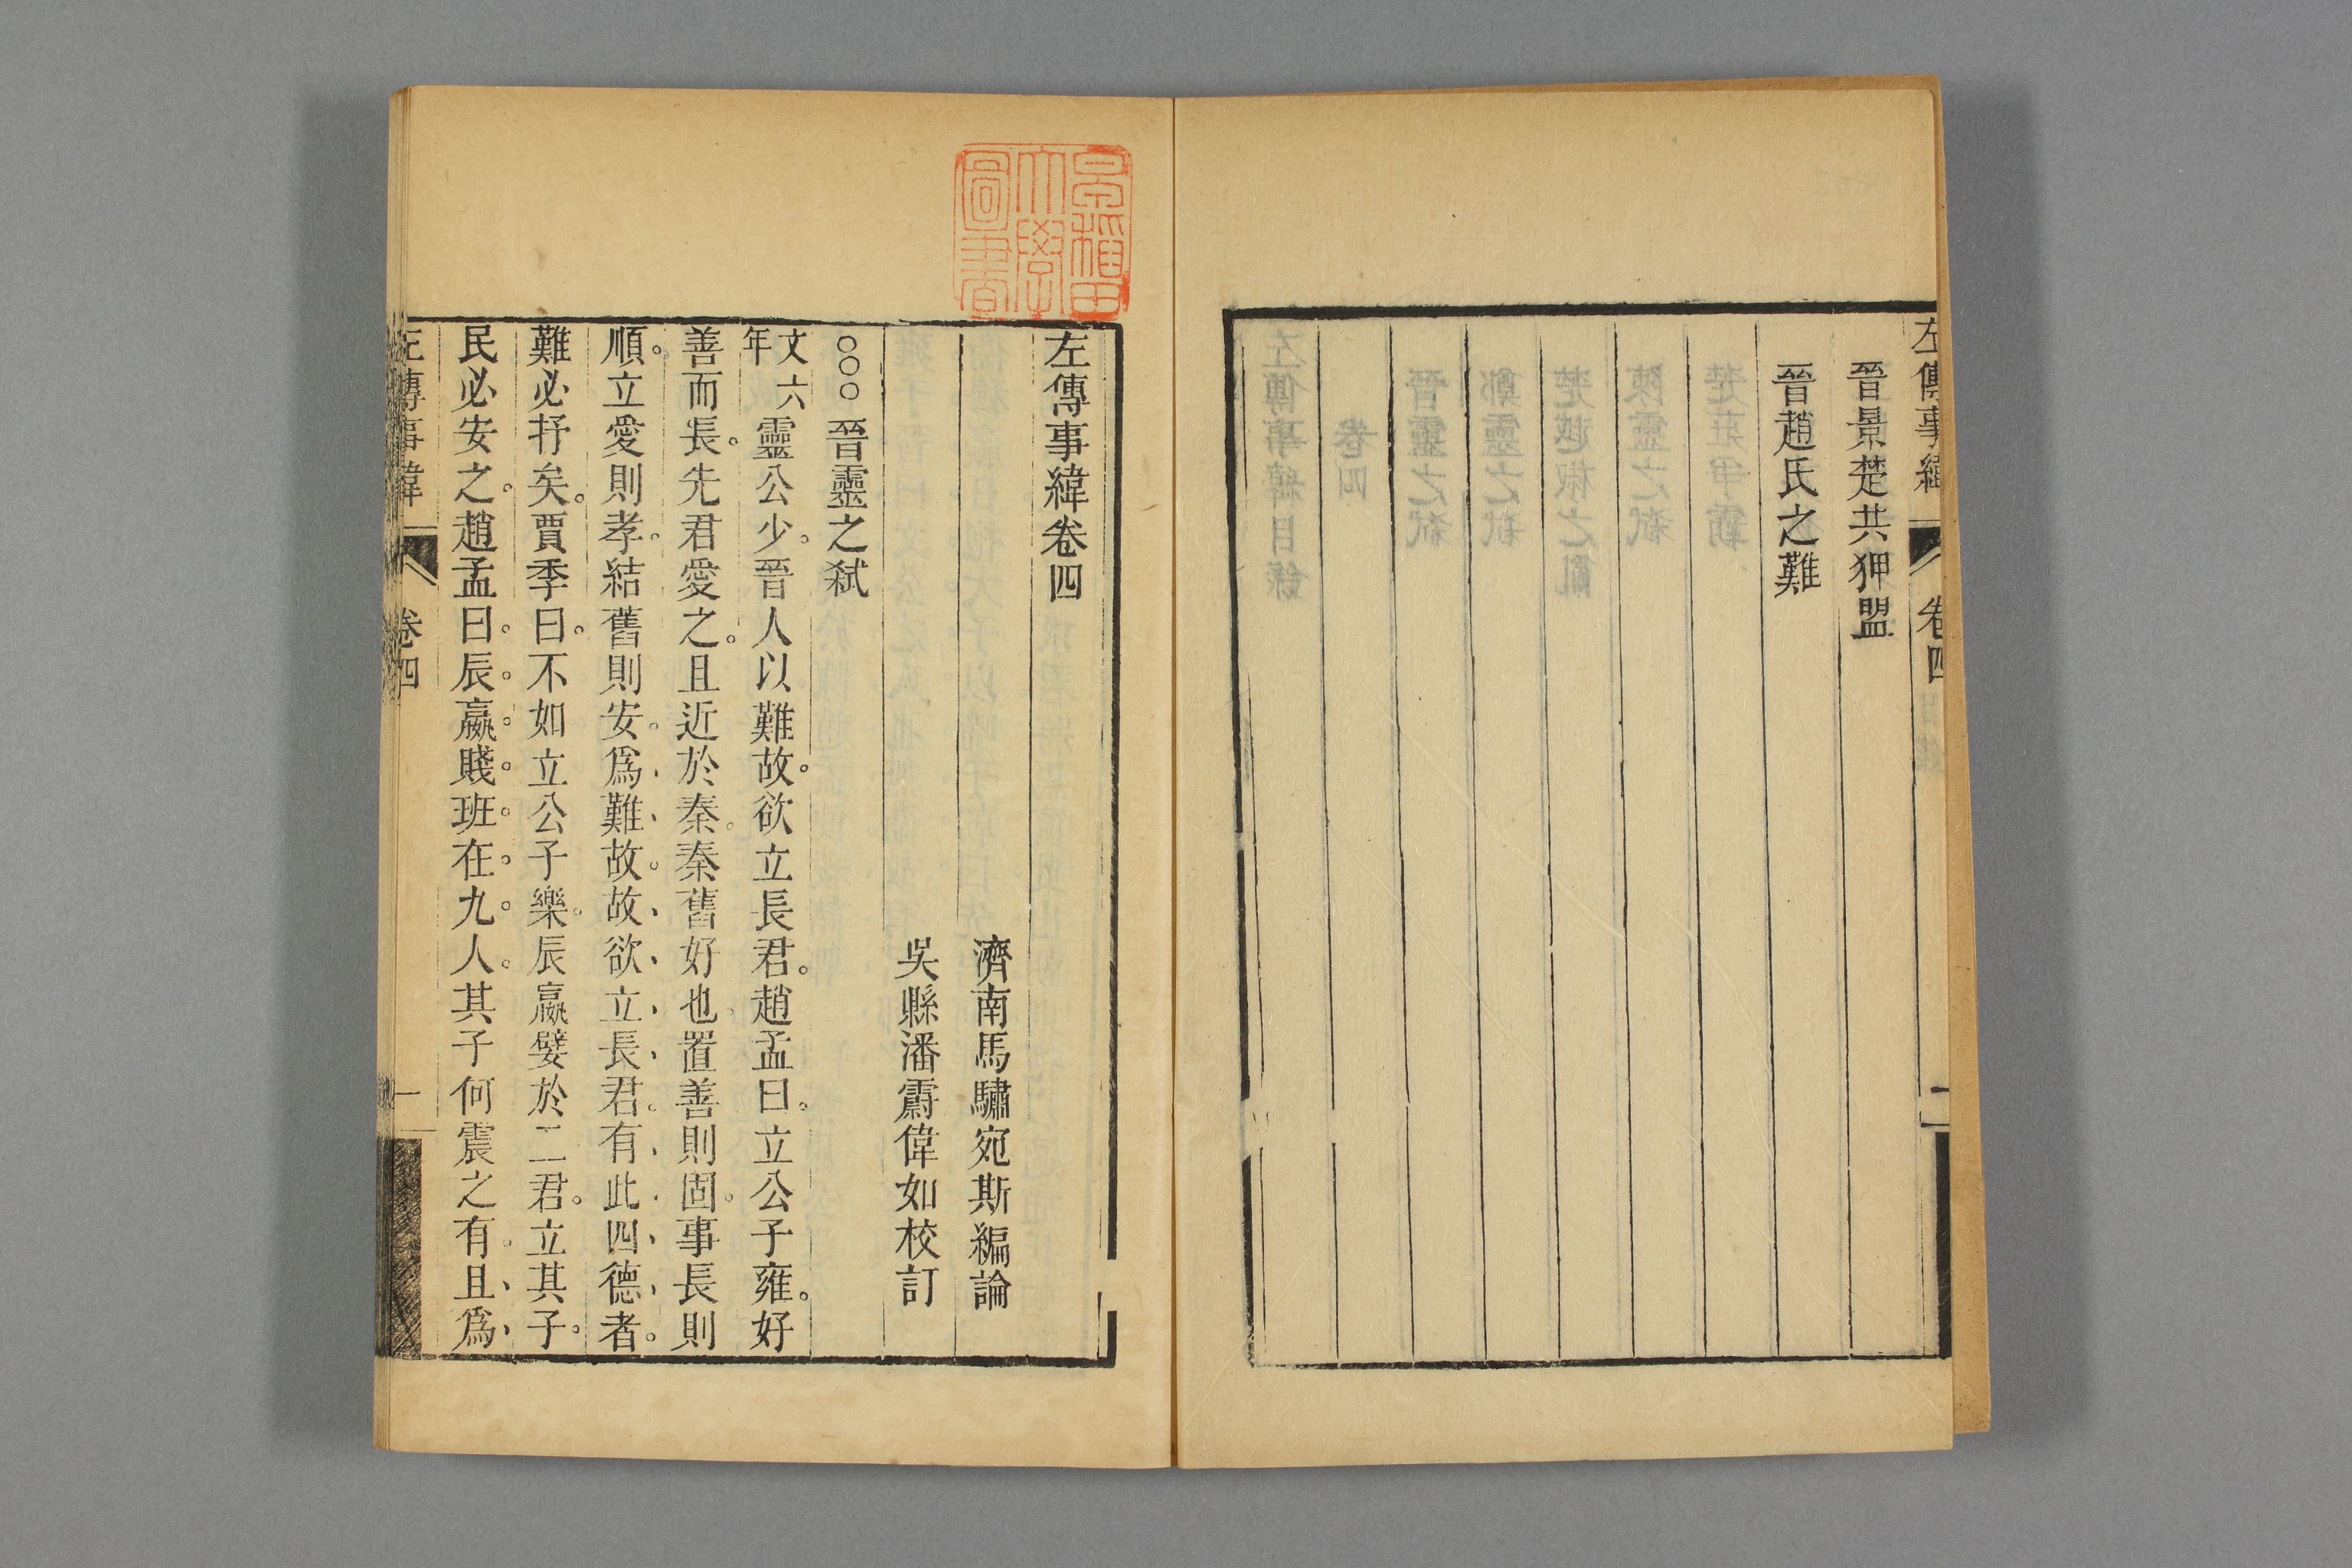 左傳事緯 卷四
晉景楚共狎盟
晉趙氏之難
早稻田
大學
圖書
左傳事緯卷四
濟南馬驌宛斯編論
吳縣潘霨偉如校訂
○○○晉靈之弑
文六年靈公少。晉人以難故。欲立長君。趙孟曰。立公子雍。好
善而長。先君愛之。且近於秦。秦舊好也。置善則固。事長則
順。立愛則孝。結舊則安。爲難故。故欲立長君。有此四德者。
難必抒矣。賈季曰。不如立公子樂。辰嬴嬖於二君。立其子。
民必安之。趙孟曰。辰嬴賤。班在九人。其子何震之有。且爲
左傳事緯 卷四 一